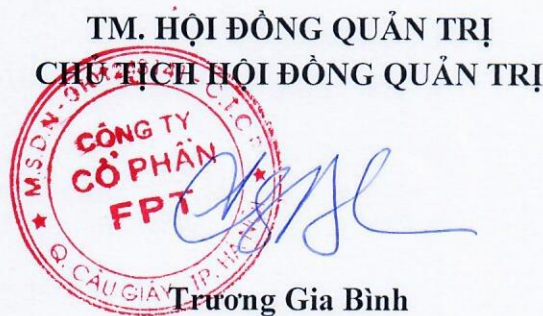 TM. HỘI ĐỒNG QUẢN TRỊ
CHỦ TỊCH HỘI ĐỒNG QUẢN TRỊ
M.S.D.N
C.T.C.P
CÔNG TY
CỔ PHẦN
FPT
Q. CẦU GIẤY - TP. HÀ NỘI
Trương Gia Bình